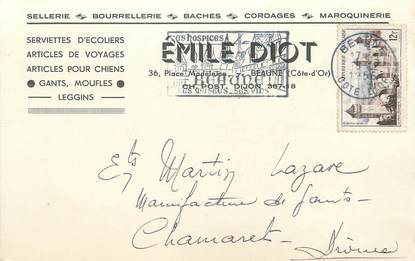 SELLERIE - BOURRELLERIE - BACHES - CORDAGES - MAROQUINERIE
SERVIETTES D'ECOLIERS
ARTICLES DE VOYAGES
ARTICLES POUR CHIENS
GANTS, MOUFLES
LEGGINS
EMILE DIOT
36, Place Madeleine - BEAUNE (Côte-d'Or)
CH. POST. DIJON 367-18
HOSPICES
BEAUNE
SES VINS
BEAUNE
12F
Ets Martin Lazare
Manufacture de Gants
Chamaret - Drôme